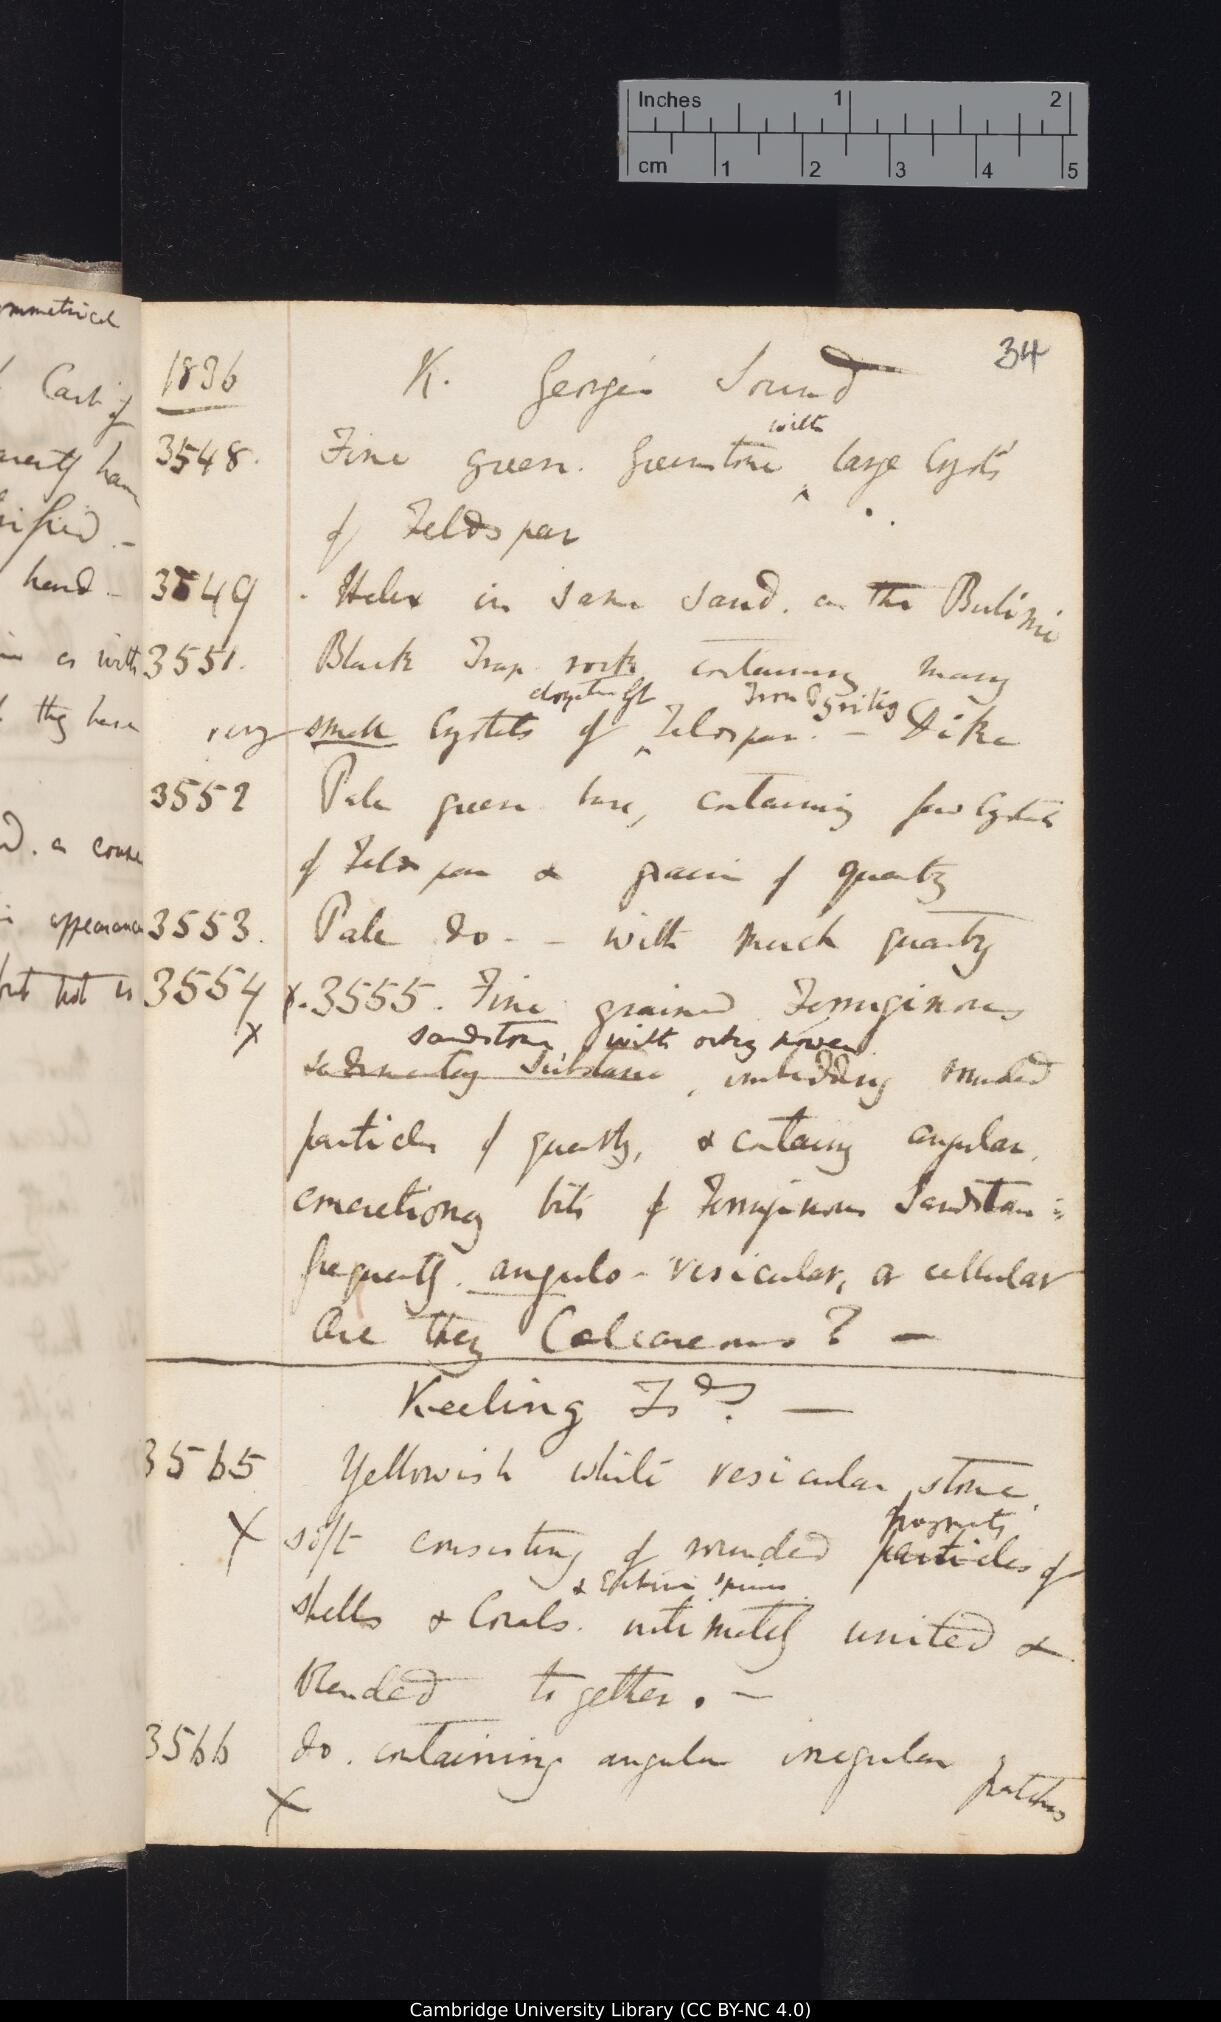 Inches 1 2
cm 1 2 3 4 5
34
mmetrical
Cast of
hard -
as with
they have
appearance
but not is
1836 K. Georges Sound
with
3548. Fine green. Greenstone ^ large Crysts
of Feldspar
3549 . Helix in same sand. as the Bulimi
3551. Black Trap rock containing many
Iron Pyrites
very small Crystals of ^ Feldspar. — Dike
3552 Pale green base, containing few Crystals
of Feldspar & grains of quartz
3553. Pale do - - with much quartz
3554 X. 3555. Fine grained Ferruginous
X sandstone with
sedimentary substance, imbedding rounded
particles of quartz, & containing angular,
concretionary bits of Ferruginous Sandstone is
frequently. angulo-vesicular, or cellular
Are they Calcareous? —
Keeling Isd? —
3565 Yellowish white vesicular stone,
fragments
X soft consisting of rounded particles of
&
shells & Corals. intimately united &
blended together. —
3566 do. containing angular irregular patches
X
Cambridge University Library (CC BY-NC 4.0)